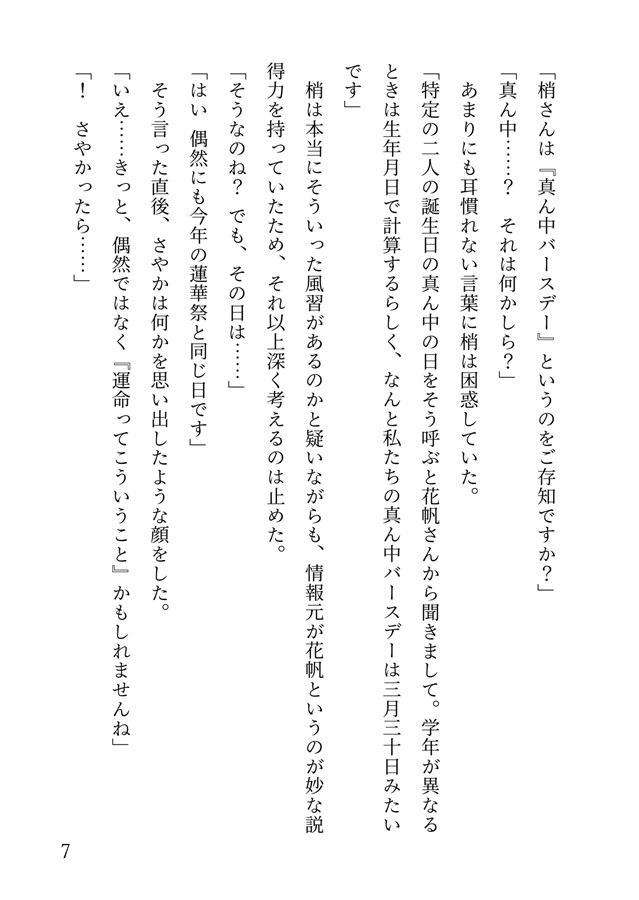 「梢さんは『真ん中バースデー』というのをご存知ですか？」
「真ん中……？　それは何かしら？」
　あまりにも耳慣れない言葉に梢は困惑していた。
「特定の二人の誕生日の真ん中の日をそう呼ぶと花帆さんから聞きまして。学年が異なる
ときは生年月日で計算するらしく、なんと私たちの真ん中バースデーは三月三十日みたい
です」
　梢は本当にそういった風習があるのかと疑いながらも、情報元が花帆というのが妙な説
得力を持っていたため、それ以上深く考えるのは止めた。
「そうなのね？ でも、その日は……」
「はい 偶然にも今年の蓮華祭と同じ日です」
　そう言った直後、さやかは何かを思い出したような顔をした。
「いえ……きっと、偶然ではなく『運命ってこういうこと』かもしれませんね」
「！　さやかったら……」
7